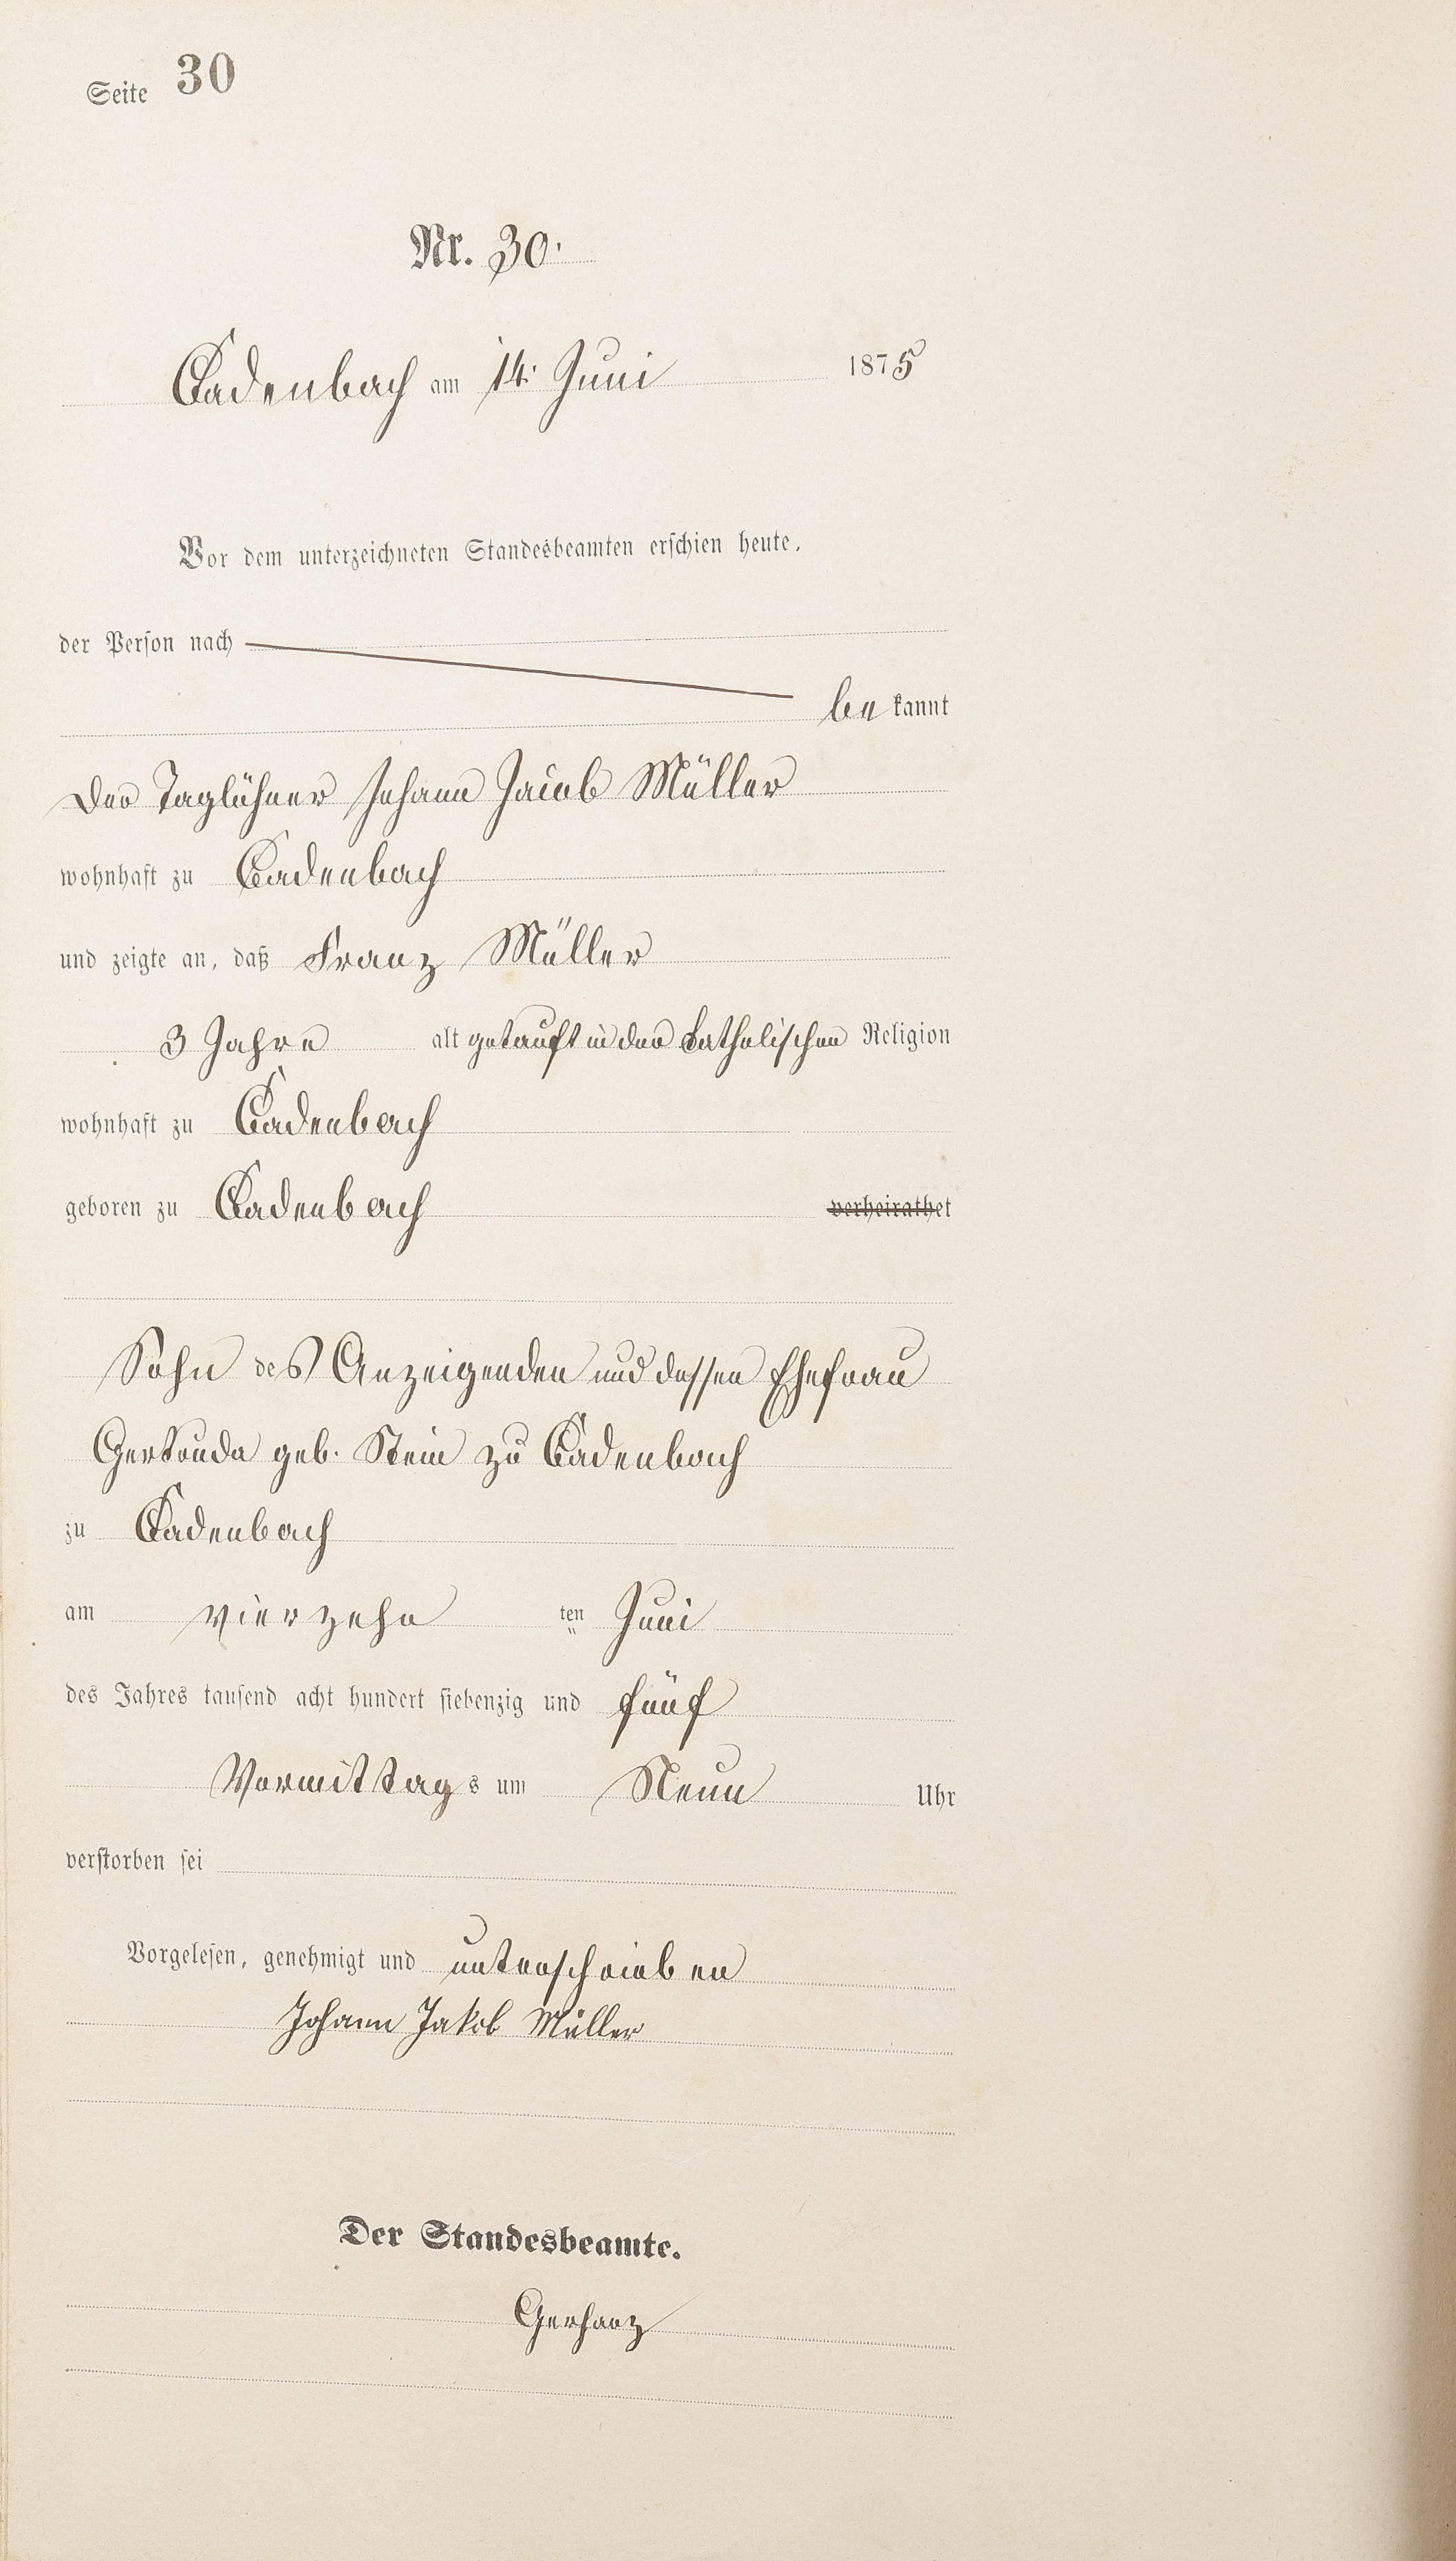 Seite 30
Nr. 30.
Cadenbach am 14. Juni 1875
Vor dem unterzeichneten Standesbeamten erschien heute,
der Person nach
bekannt
der Taglöhner Johann Jacob Müller
wohnhaft zu Cadenbach
und zeigte an, daß Franz Müller
3 Jahre alt getauft in der katholischen Religion
wohnhaft zu Cadenbach
geboren zu Cadenbach verheirathet
Sohn des Anzeigenden und dessen Ehefrau
Gertruda geb. Stein zu Cadenbach
zu Cadenbach
am vierzehn ten Juni
des Jahres tausend acht hundert siebenzig und fünf
Vormittags um Neun Uhr
verstorben sei
Vorgelesen, genehmigt und unterschrieben
Johann Jakob Müller
Der Standesbeamte.
Gerharz